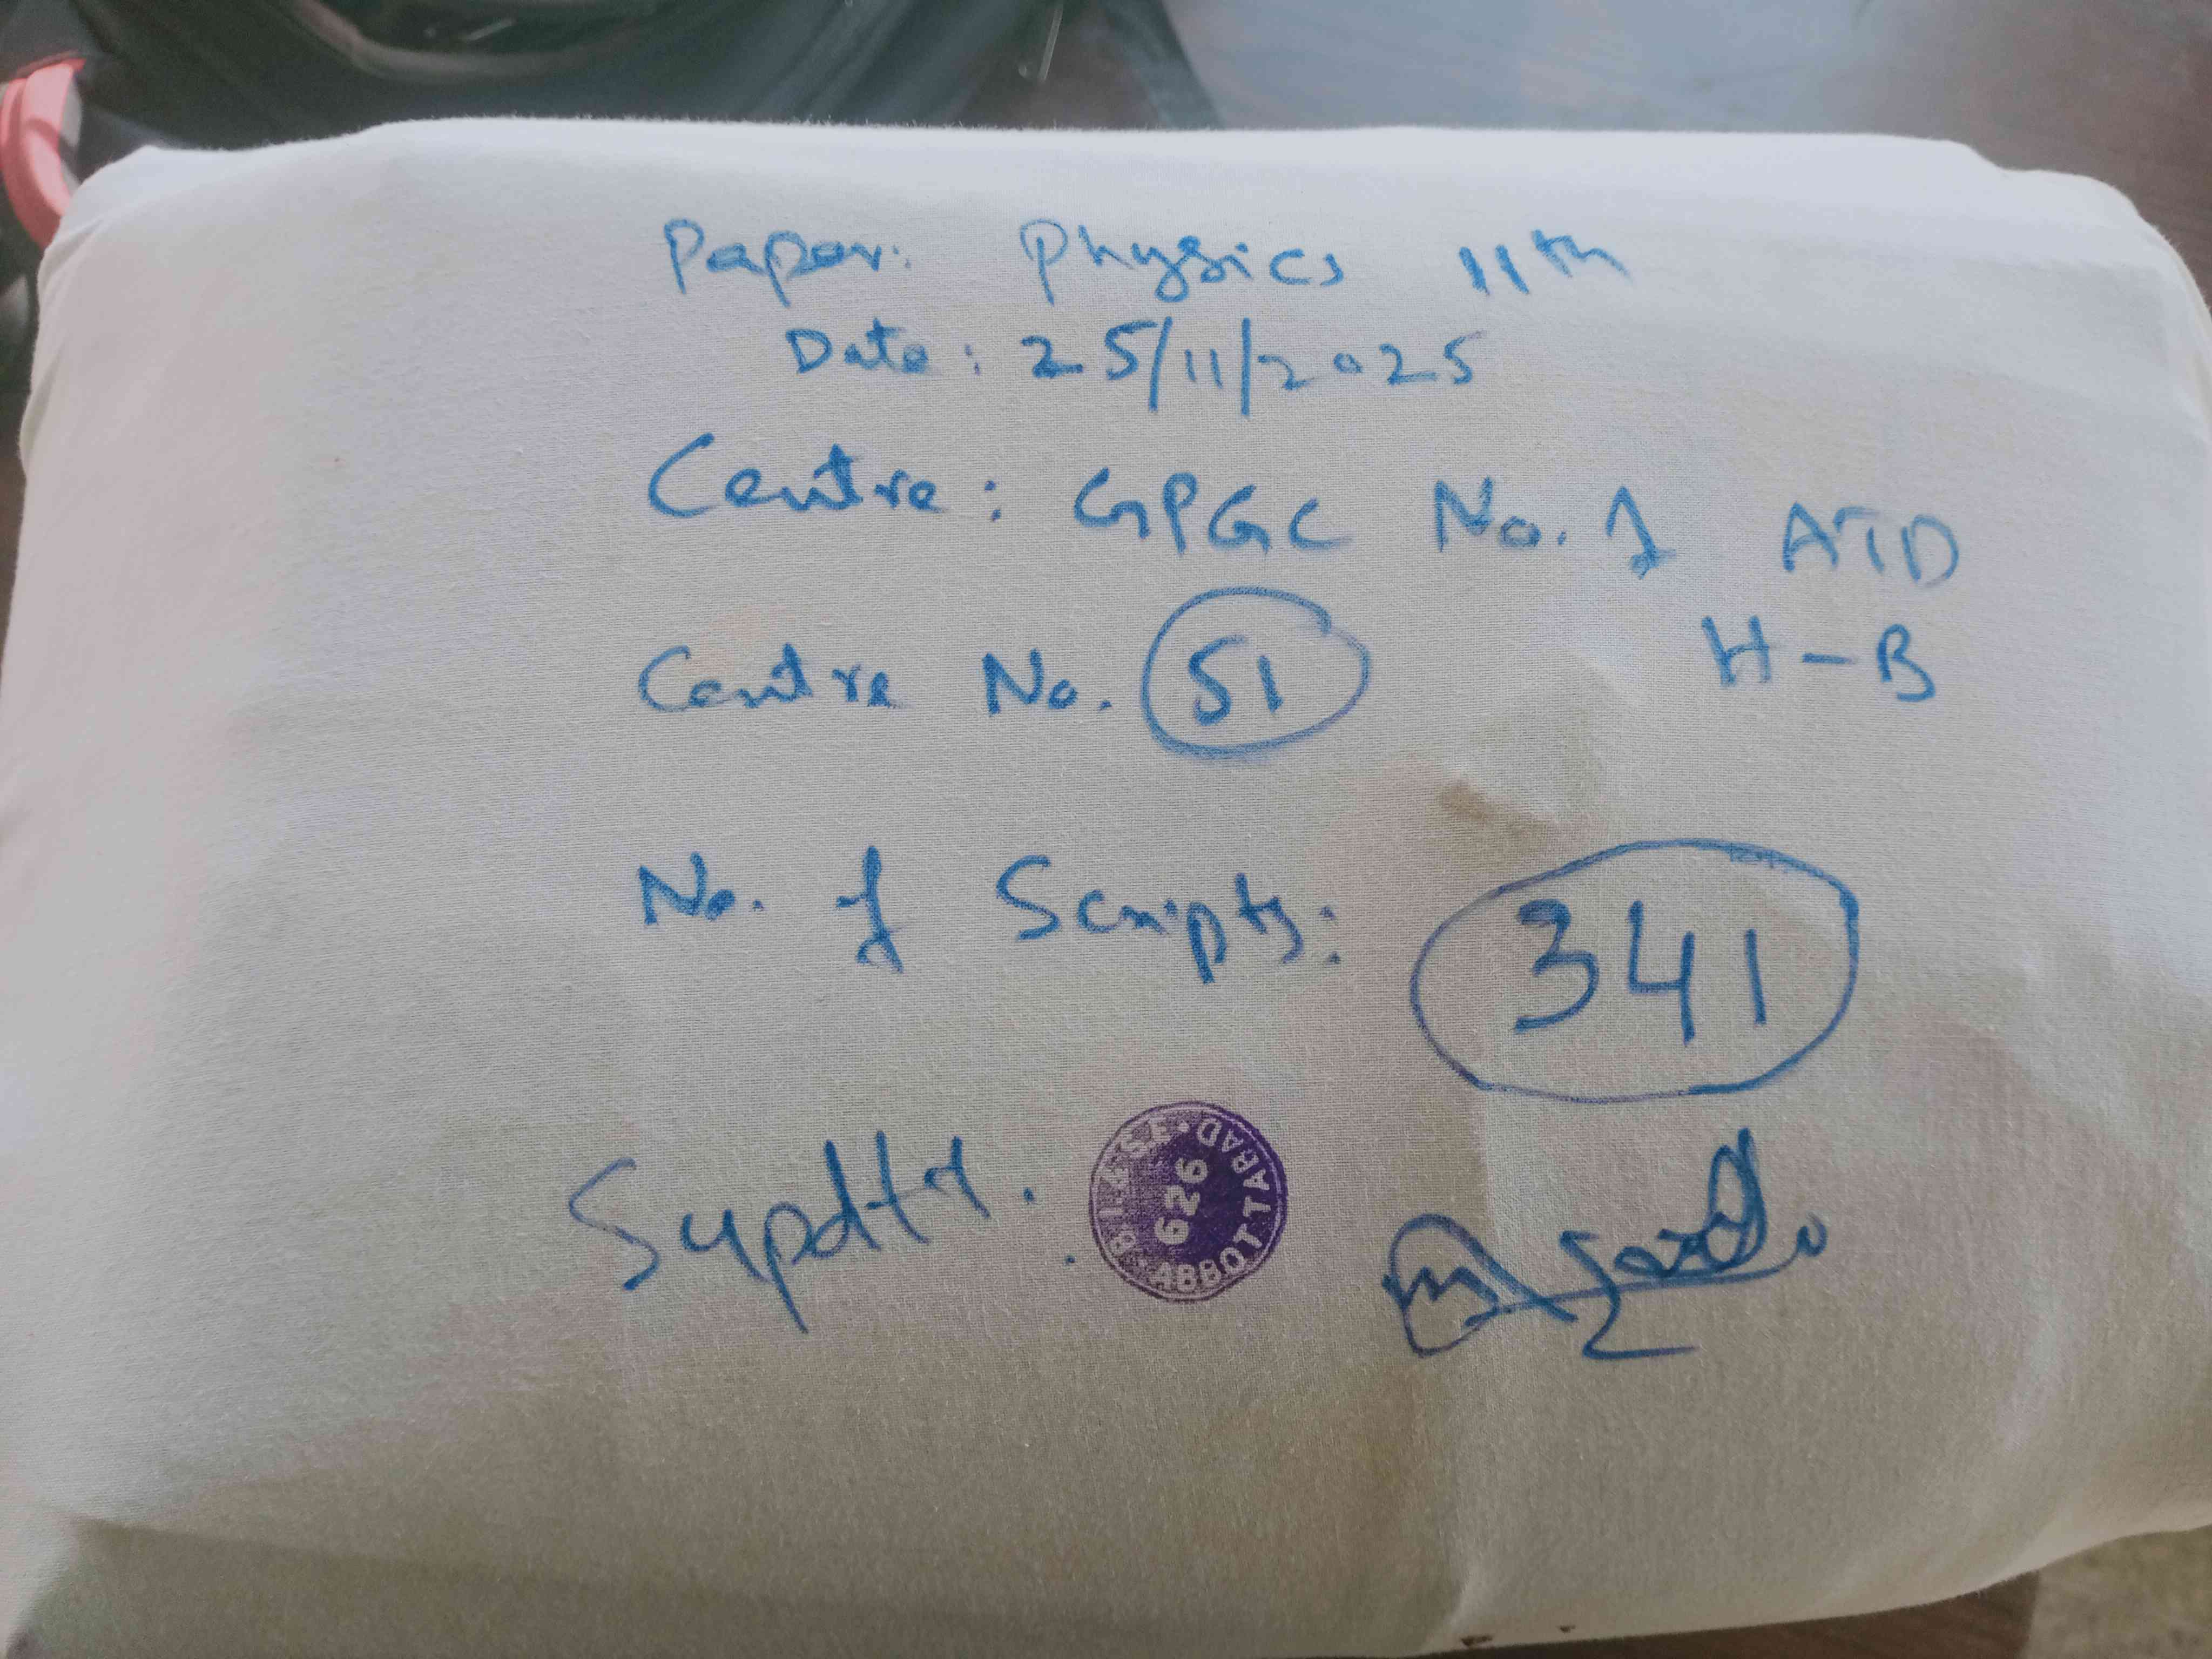 Paper: Physics 11th
Date: 25/11/2025
Centre: GPGC No. 1 ATD
H-B
Centre No. 51
No. of Scripts: 341
Supdtt.
B.I.&.S.E. ABBOTTABAD
626